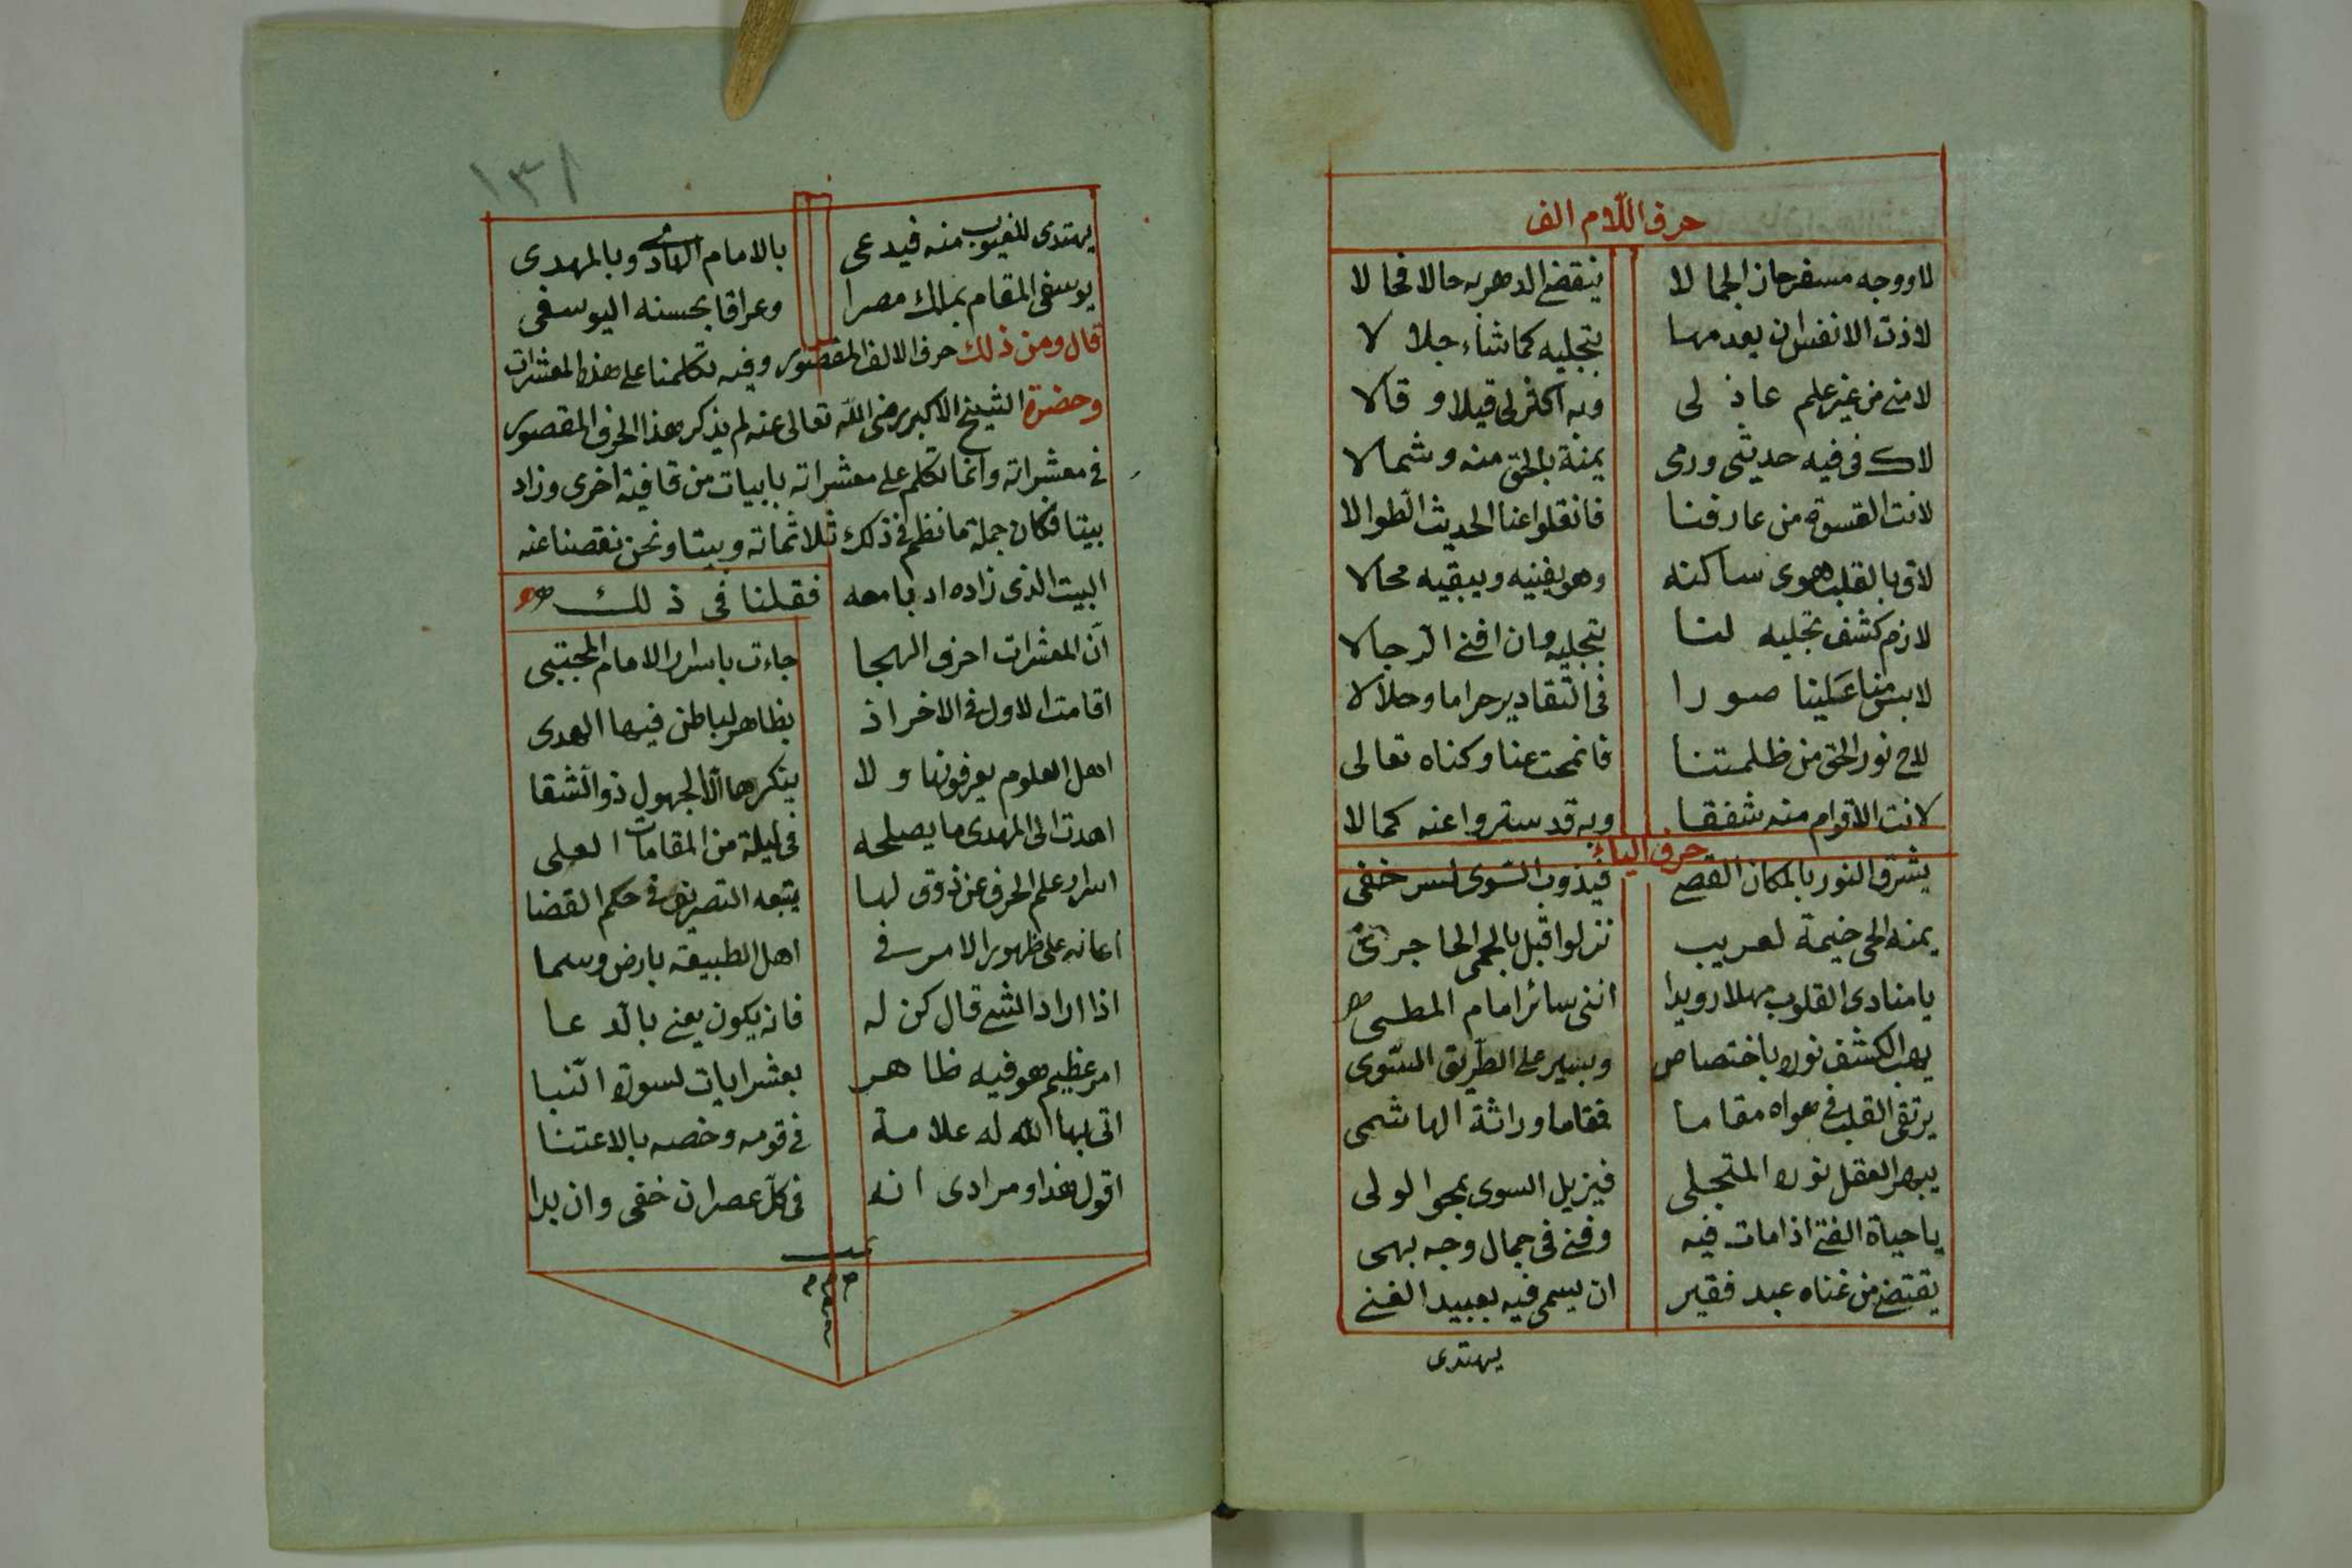 حرف اللام الف
لا ووجه مسفر حاز الجمالا ينقضى الدهر به حالا فحالا
لاذت الانفس ان يعدمها بتجليه كما شاء جلالا
لامنى من غير علم عاذلى وبه اكثر لى قيلا وقالا
لاك فى فيه حديثى ورمى يمنة بالحق منه وشمالا
لانت القسوة من عارفنا فانقلوا عنا الحديث الطوالا
لاق بالقلب هوى ساكنه وهو يفنيه ويبقيه محالا
لازم كشف تجليه لنا بتجليه وان افنى الرجالا
لابس منا علينا صورا فى التقادير حراما وحلالا
لاح نور الحق من ظلمتنا فانمحت عنا وكناه تعالى
لانت الاقوام منه شفقا وبه قد ستروا عنه كمالا
حرف الياء
يشرق النور بالمكان القصى فيذوب السوى لسر خفى
يمنة الحى خيمة لعريب نزلوا قبل بالحمى الحاجرى
يا منادى القلوب مهلا رويدا اننى سائر امام المطى
يهب الكشف نوره باختصاص ويسير على الطريق السوى
يرتقى القلب فى هواه مقاما فمقاما وراثة الهاشمى
يبهر العقل نوره المتجلى فيزيل السوى بمحو الولى
يا حياة الفتى اذا مات فيه وفنى فى جمال وجه بهى
يقتضى من غناه عبد فقير ان يسمى فيه بعبيد الغنى
يهتدى
١٣١
يهتدى للغيوب منه فيدعى بالامام الهادى وبالمهدى
يوسفى المقام يملك مصرا وعراقا بحسنه اليوسفى
قال ومن ذلك حرف الالف المقصور وفيه تكلمنا على هذه المعشرات
وحضرة الشيخ الاكبر رضى الله تعالى عنه لم يذكر هذا الحرف المقصور
فى معشراته وانما تكلم على معشراته بابيات من قافية اخرى وزاد
بيتا فكان جملة ما نظم فى ذلك ثلاثمائة وبيتا ونحن نقصنا عنه
البيت الذى زاده ادبا معه فقلنا فى ذلك
ان المعشرات احرف الهجا جاءت باسرار الامام المجتبى
اقامت الاول فى الاخر اذ بظاهر لباطن فيها الهدى
اهل العلوم يعرفونها ولا ينكرها الا الجهول ذو الشقا
اهدت الى المهدى ما يصلحه فى ليلة من المقامات العلى
اسرار علم الحرف عن ذوق لها يتبعه التصريف فى حكم القضا
اعانه على ظهور الامر فى اهل الطبيعة بارض وسما
اذا اراد الشى قال كن له فانه يكون يعنى بالدعا
امر عظيم هو فيه ظاهر بعشر ايات لسورة النبا
اتى بها الله له علامة فى قومه وخصه بالاعتنا
اقول هذا ومرادى انه فى كل عصر ان خفى وان بدا
تمت